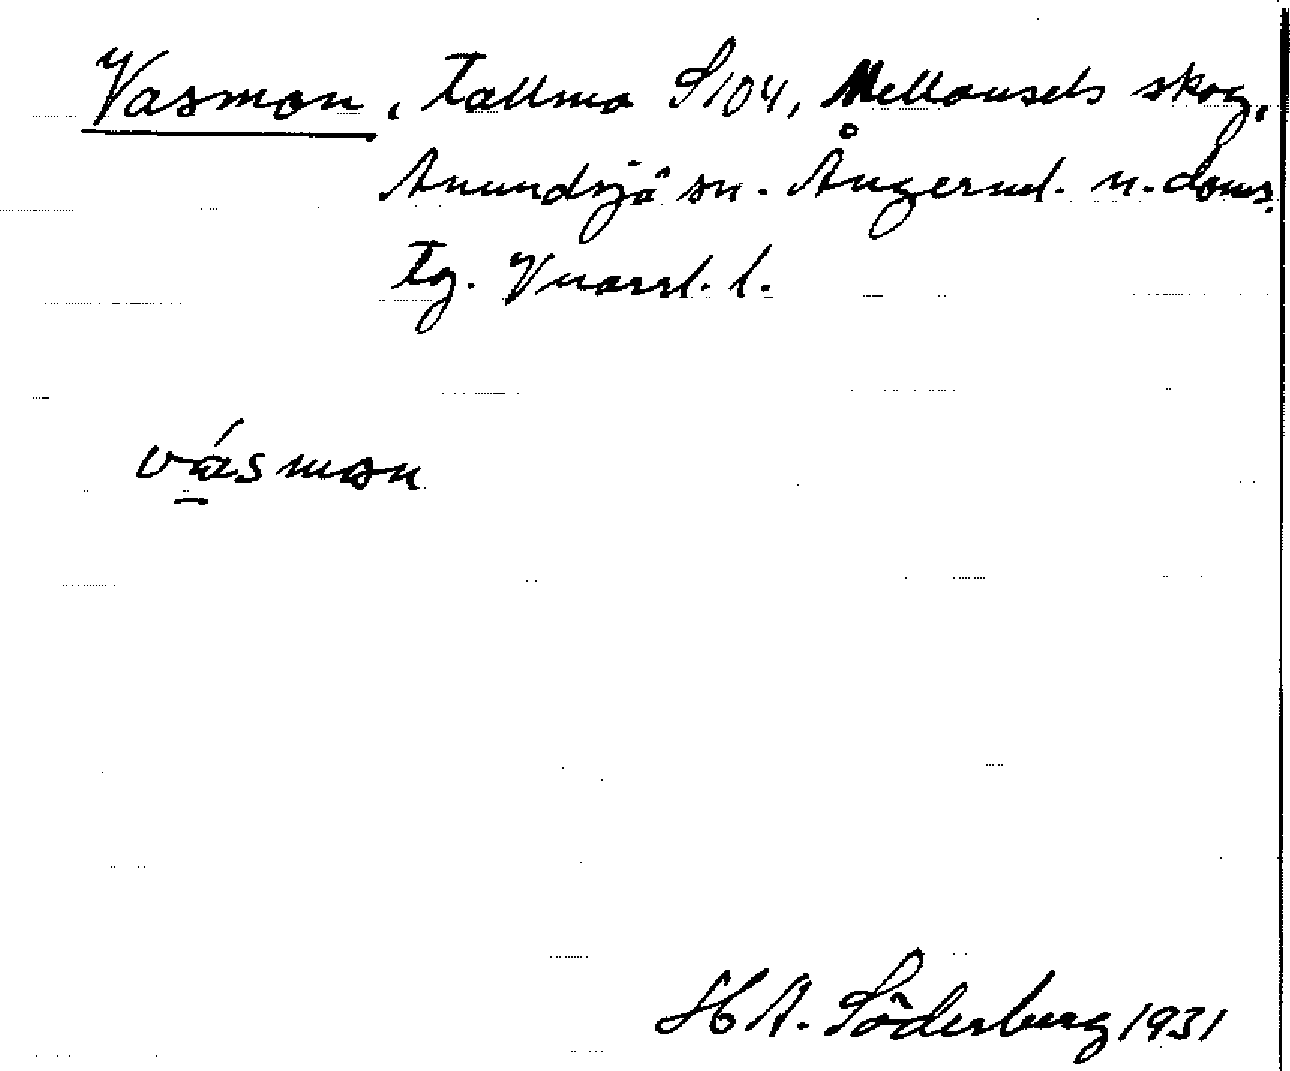 Vasmon, tallmo S104, Mellansels skog,
Anundsjö sn. Ångerml. n. doms.
tg. Vnorrl. l.
vásmon
H A. Söderberg 1931